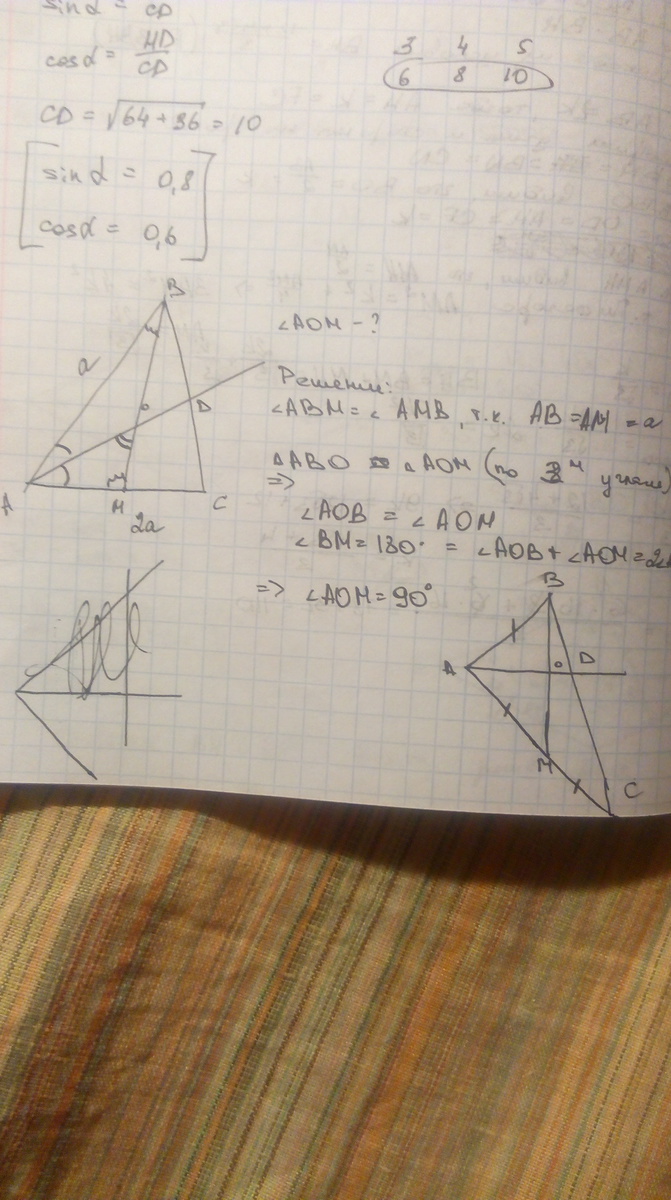 sinα = CD
cosα = HD/CD
3 4 5
6 8 10
CD = √64+36 = 10
sinα = 0,8
cosα = 0,6
B
a
o
D
A
M
C
2a
∠AOM - ?
Решение:
∠ABM = ∠AMB, т.к. AB = AM = a
△ABO △AOM (по 2м углам)
=> ∠AOB = ∠AOM
∠BM = 180° = ∠AOB + ∠AOM =
=> ∠AOM = 90°
B
A
o
D
M
C